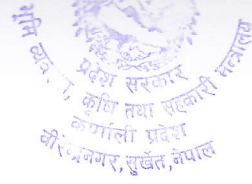 भूमि व्यव
, कृषि तथा सहकारी मन्त्रालय
प्रदेश सरकार
कर्णाली प्रदेश
वीरेन्द्रनगर, सुर्खेत, नेपाल